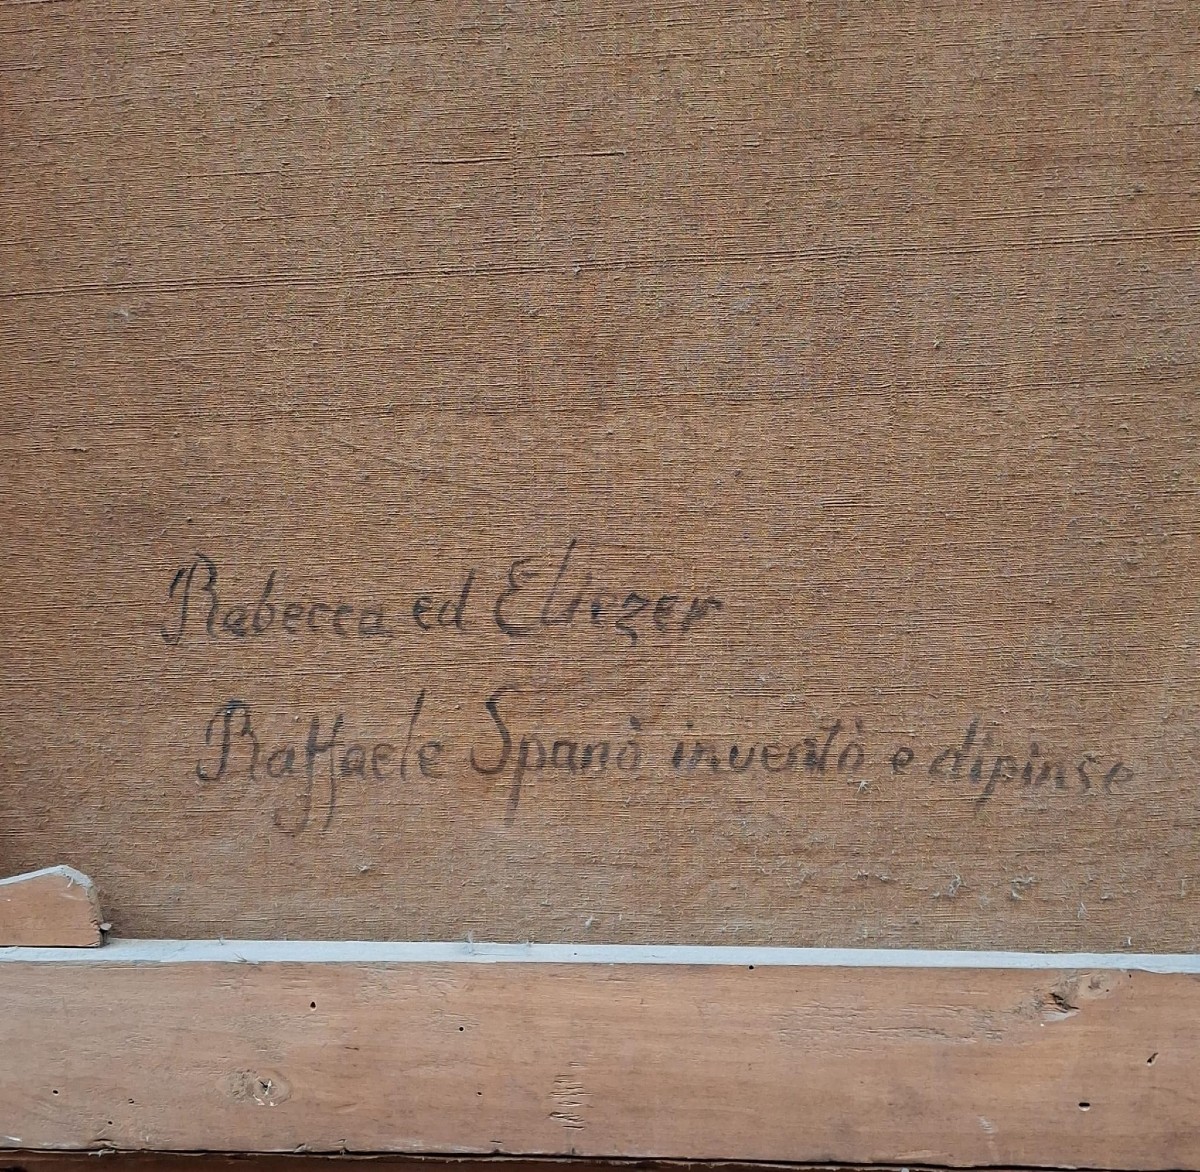 Rabecca ed Eliezer
Raffaele Spanò inventò e dipinse